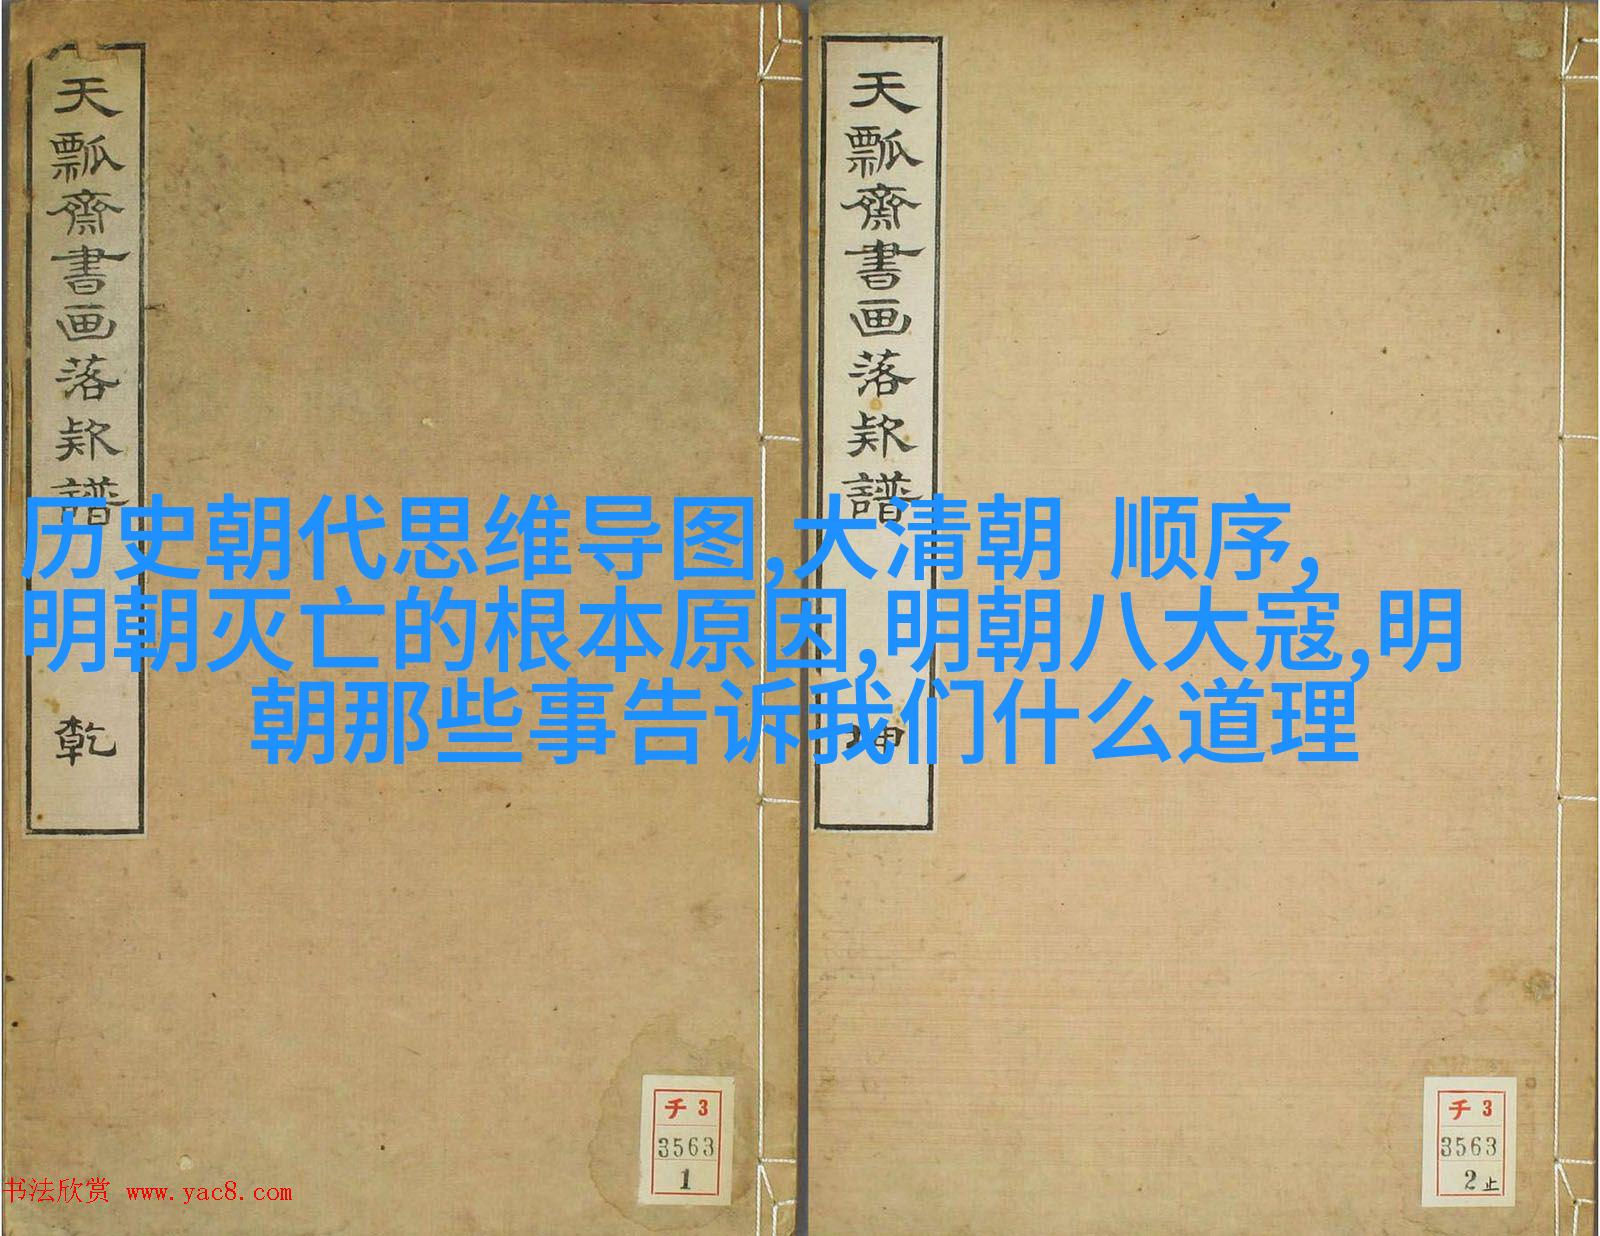 天瓢齋書画落欵譜
乾
天瓢齋書画落欵譜
坤
历史朝代思维导图,大清朝 顺序,
明朝灭亡的根本原因,明朝八大寇,明
朝那些事告诉我们什么道理
チ 3
3563
1
チ 3
3563
2止
书法欣赏 www.yac8.com